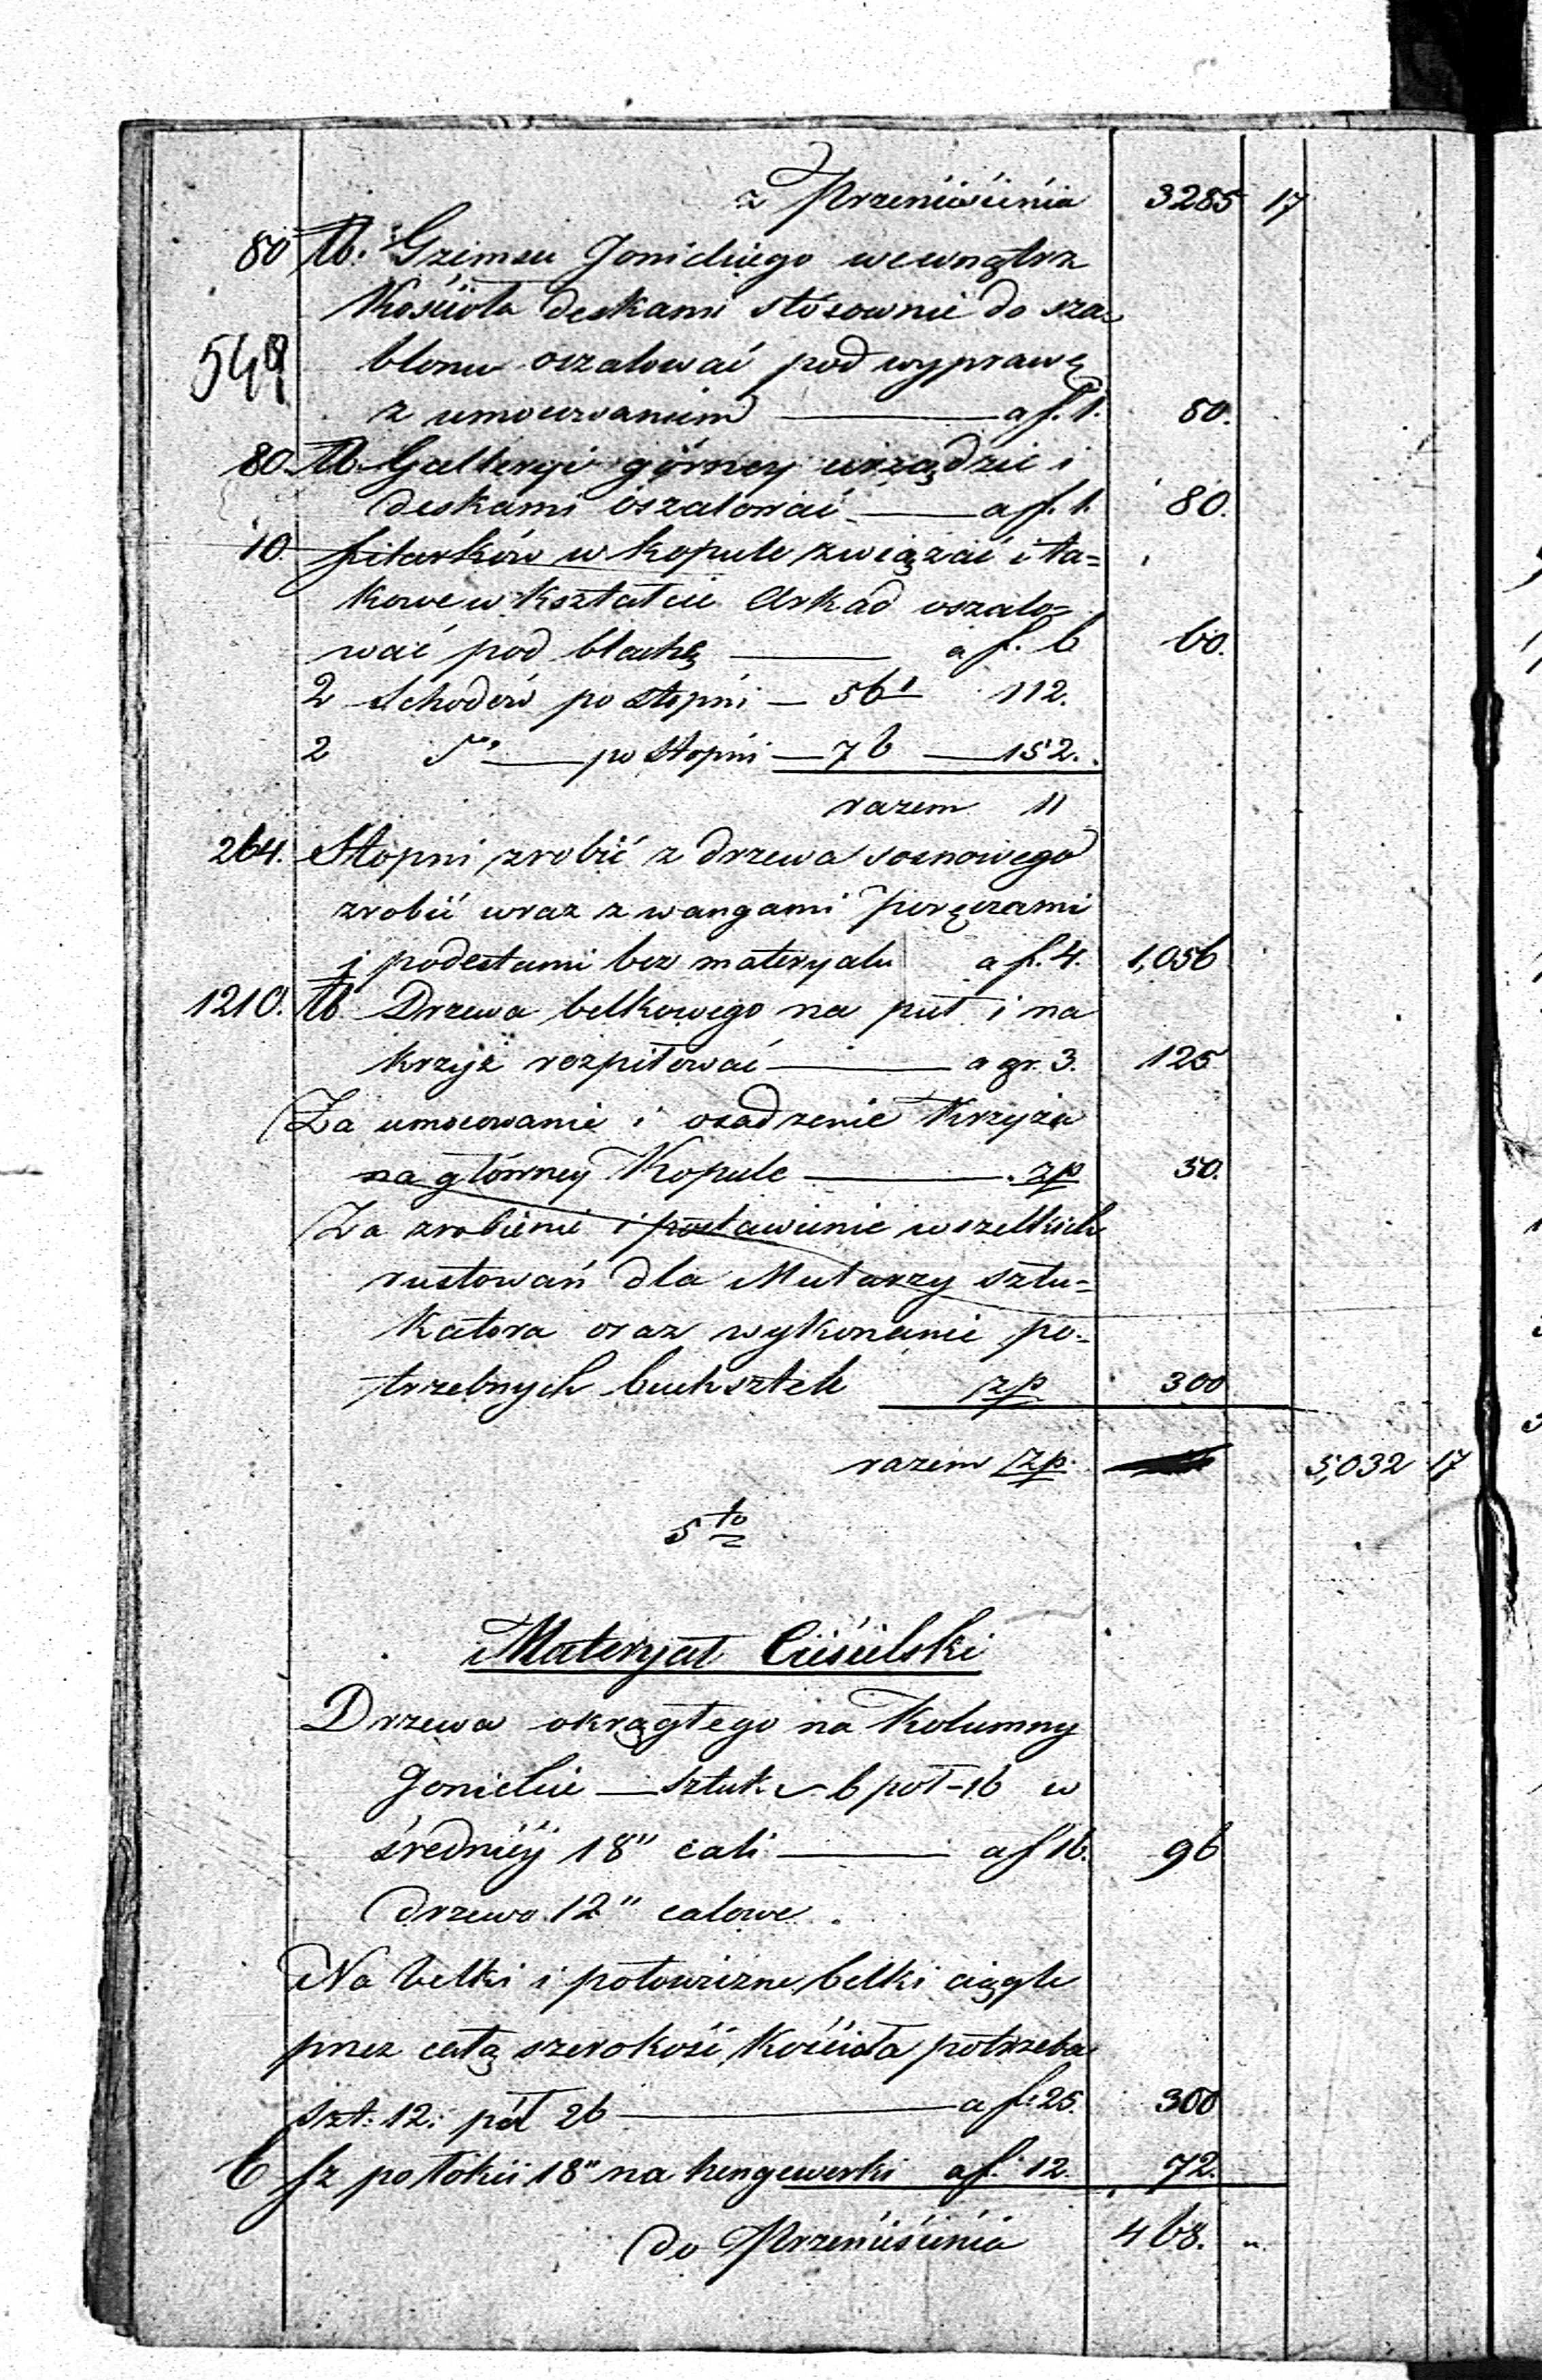 z Przeniesienia 3285 17
80 łb. Gzimsu Jonickiego wewnątrz
Kościoła deskami stósownie do sza-
549 blonu oszalować pod wyprawę
z umocowaniem — a f. 1. 80.
80. łb. Galleryi górney urządzić i
deskami oszalować — a f. 1. 80.
10. filarków w kopule związać i ta=
kowe w kształcie Arkad oszalo=
wać pod blachę — a f. 6 60.
2 Schodów po stopni — 56 112.
2 — po stopni — 76 — 152.
razem 11
264. Stopni zrobić z drzewa sosnowego
zrobić wraz z wangami poręczami
i podestami bez materyału a f. 4. 1,056
1210. łb Drzewa belkowego na puł i na
krzyż rozpiłować — a gr. 3. 125
Za umocowanie i osadzenie Krzyża
na główney Kopule — zp 50.
Za zrobienie i postawienie wszelkich
rustowań dla Mularzy sztu=
katora oraz wykonanie po=
trzebnych buksztele zp 300
razem zp. 5,032 17
5to
Materyał Ciesielski
Drzewa okrągłego na Kolumny
Jonickie — sztuk 6 poł - 16 w
średnicy 18" cali — a f 16. 96
drzewo 12" calowe.
Na belki i połowizne belki ciągłe
przez całą szerokość Kościoła potrzeba
szt: 12: pół 26 — a f. 25. 300
6 sz po łokci 18" na hengewerki a f. 12. 72.
do Przeniesienia 468. "